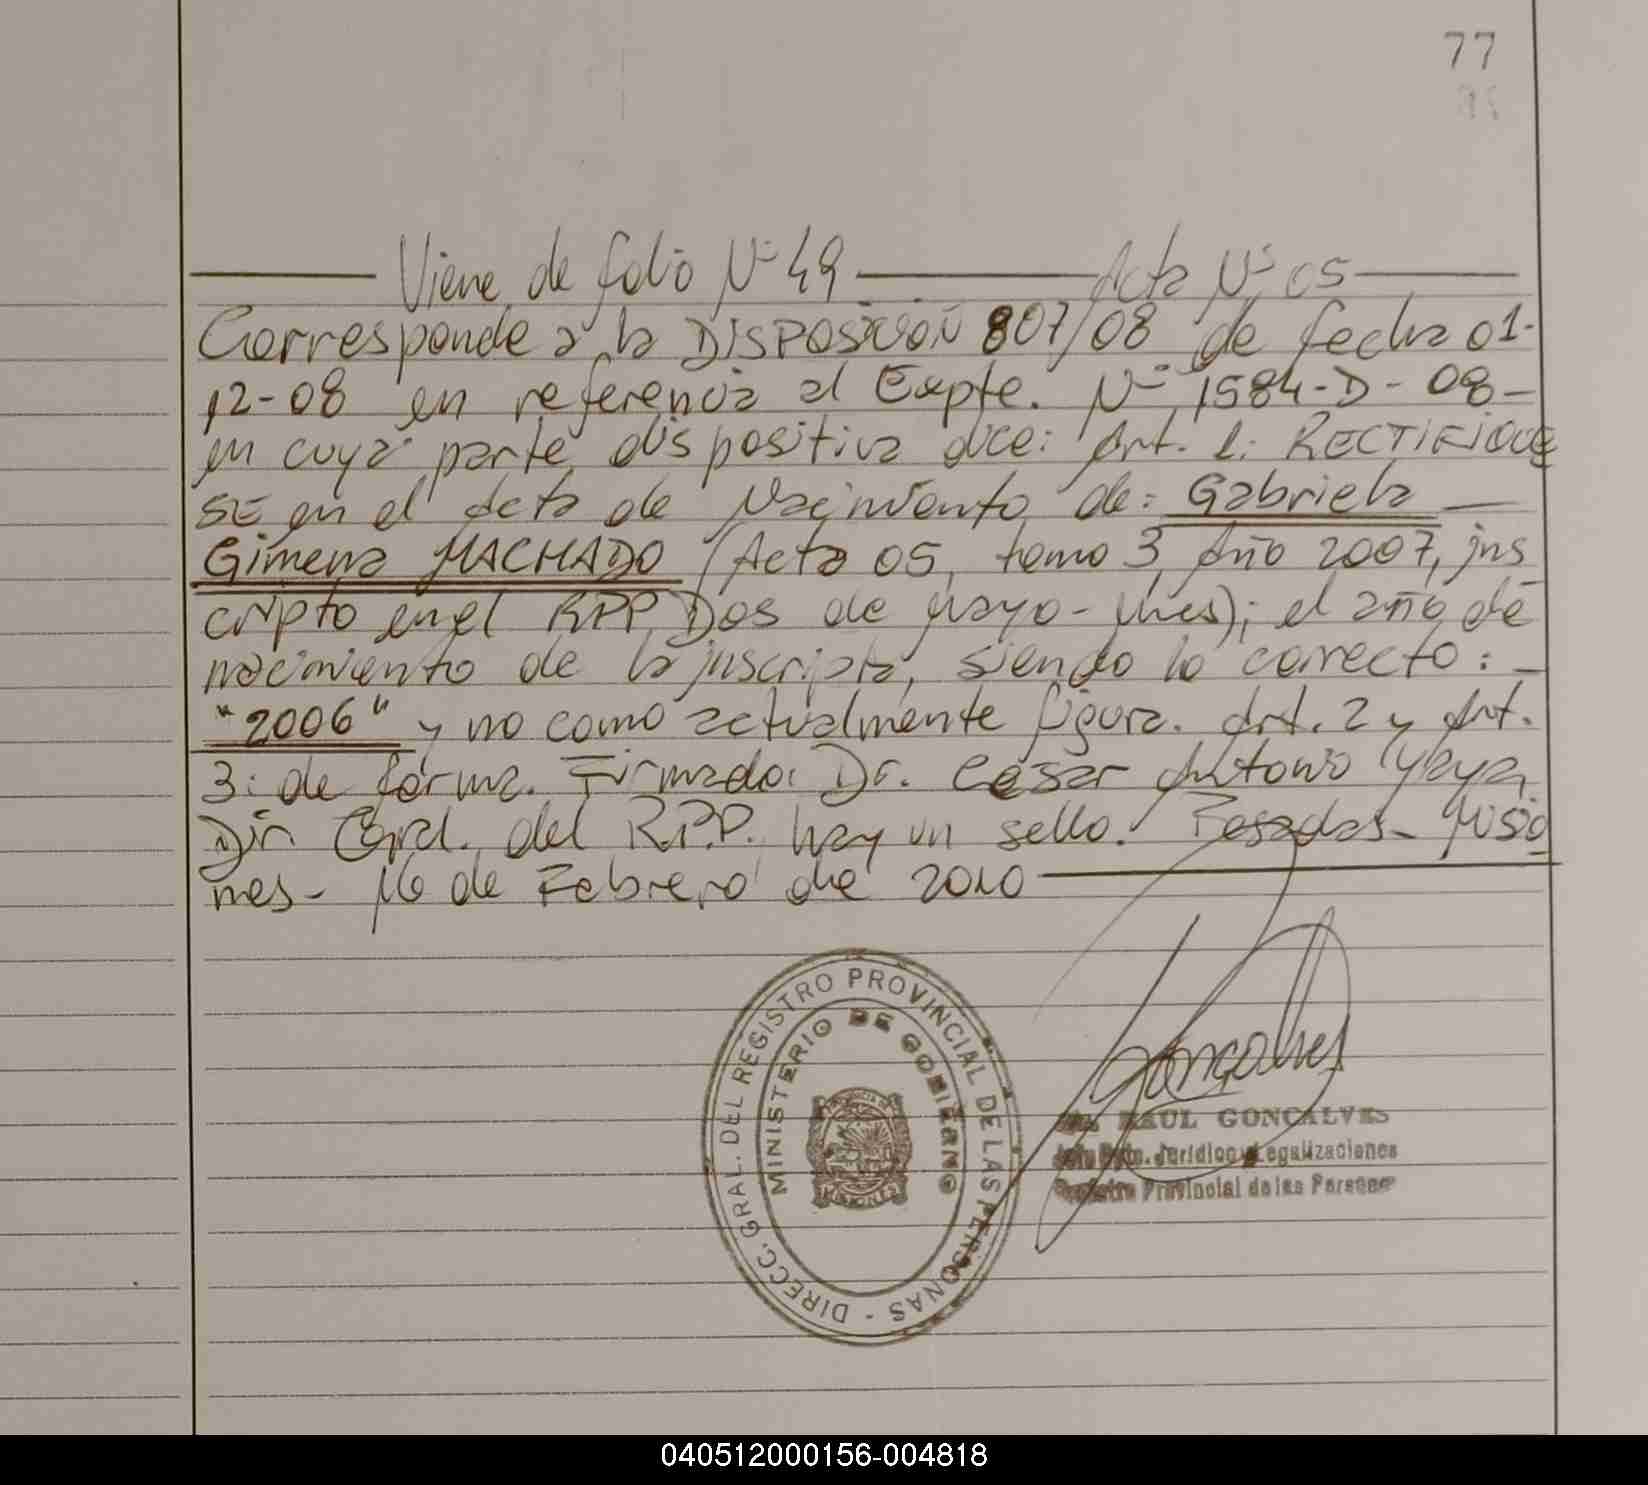 77
Viene de folio Nº 49 Acta Nº 05
Corresponde a la DISPOSICION 807/08 de fecha 01-
12-08 en referencia al Expte. Nº 1584-D-08-
en cuya parte dispositiva dice: Art. 1: RECTIFIQUE
SE en el Acta de Nacimiento de: Gabriela
Gimena MACHADO (Acta 05, tomo 3, Año 2007, ins
cripto en el RPP Dos de Mayo - Mnes); el año de
nacimiento de la inscripta, siendo lo correcto: -
"2006" y no como actualmente figura. Art. 2 y Art.
3: de forma. Firmado: Dr. Cesar Antonio
Dir. Gral. del R.P.P. hay un sello. Posadas- Misio
nes- 16 de Febrero de 2010
DIRECC. GRAL. DEL REGISTRO PROVINCIAL DE LAS PERSONAS -
MINISTERIO DE GOBIERNO
MISIONES
Goncalves
RAUL GONCALVES
Jefe Dpto. Jurídico y Legalizaciones
Registro Provincial de las Personas
040512000156-004818